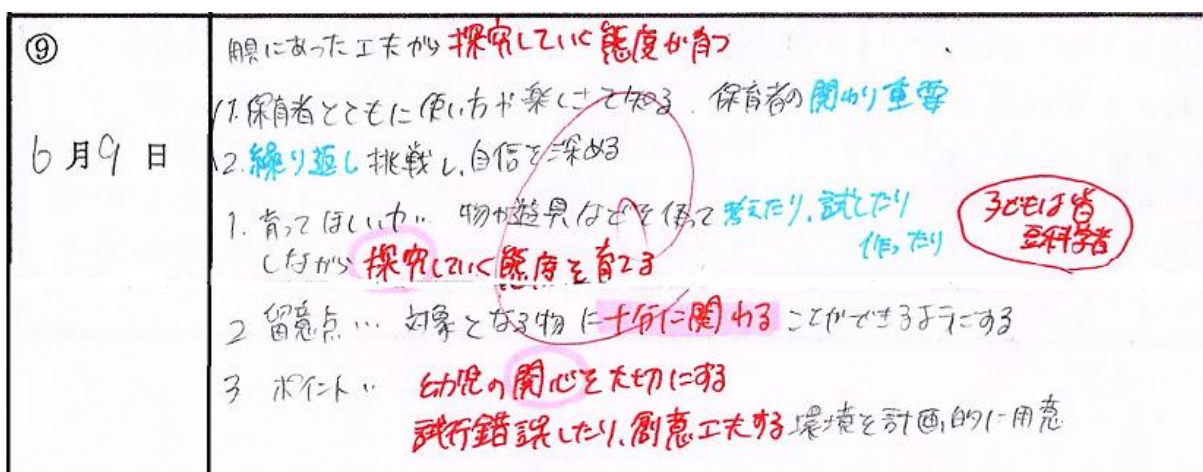 ⑨
6月9日
眼にあった工夫から探究していく態度が育つ
1.保育者とともに使い方や楽しさを知る. 保育者の関わり重要
2.繰り返し挑戦し、自信を深める
1. 育ってほしい力… 物や遊具などを使って考えたり、試したり
作ったり
しながら探究していく態度を育てる
子どもは皆
豆科学者
2 留意点… 対象となる物に十分に関わることができるようにする
3 ポイント… 幼児の関心を大切にする
試行錯誤したり、創意工夫する環境を計画的に用意